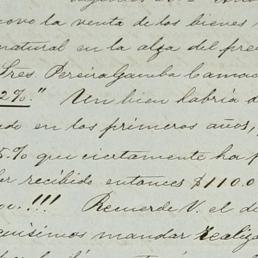 ovo la venta de los bienes
natural en la alza del pre
Sres. Pereira Gamba Camac
2%." Un bien habria d
do en los primeros años,
5.% que ciertamente ha p
lor recibido entonces $110.0
!!! Recuerde V. el d
quisimos mandar realiza